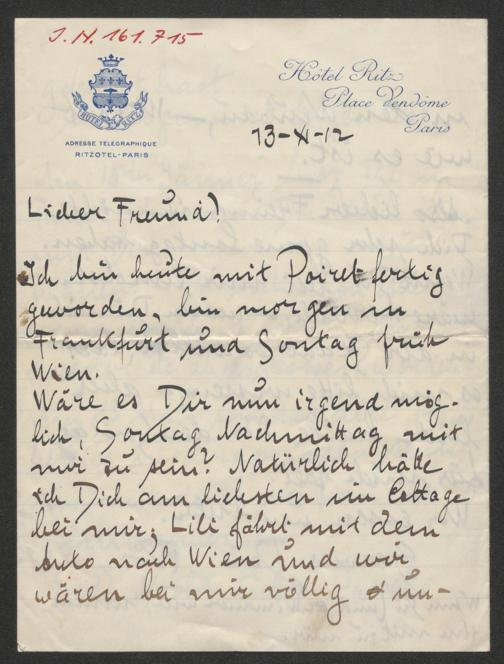 J.N. 161.715
HOTEL RITZ
ADRESSE TÉLÉGRAPHIQUE
RITZOTEL-PARIS
Hôtel Ritz
Place Vendôme
Paris
13-XI-12
Lieber Freund!
Ich bin heute mit Poiret fertig
geworden, bin morgen in
Frankfurt und Sontag früh
Wien.
Wäre es Dir nun irgend mög-
lich, Sontag Nachmittag mit
mir zu sein? Natürlich hätte
ich Dich am liebsten im Cottage
bei mir; Lili fährt mit dem
Auto nach Wien und wir
wären bei mir völlig un-